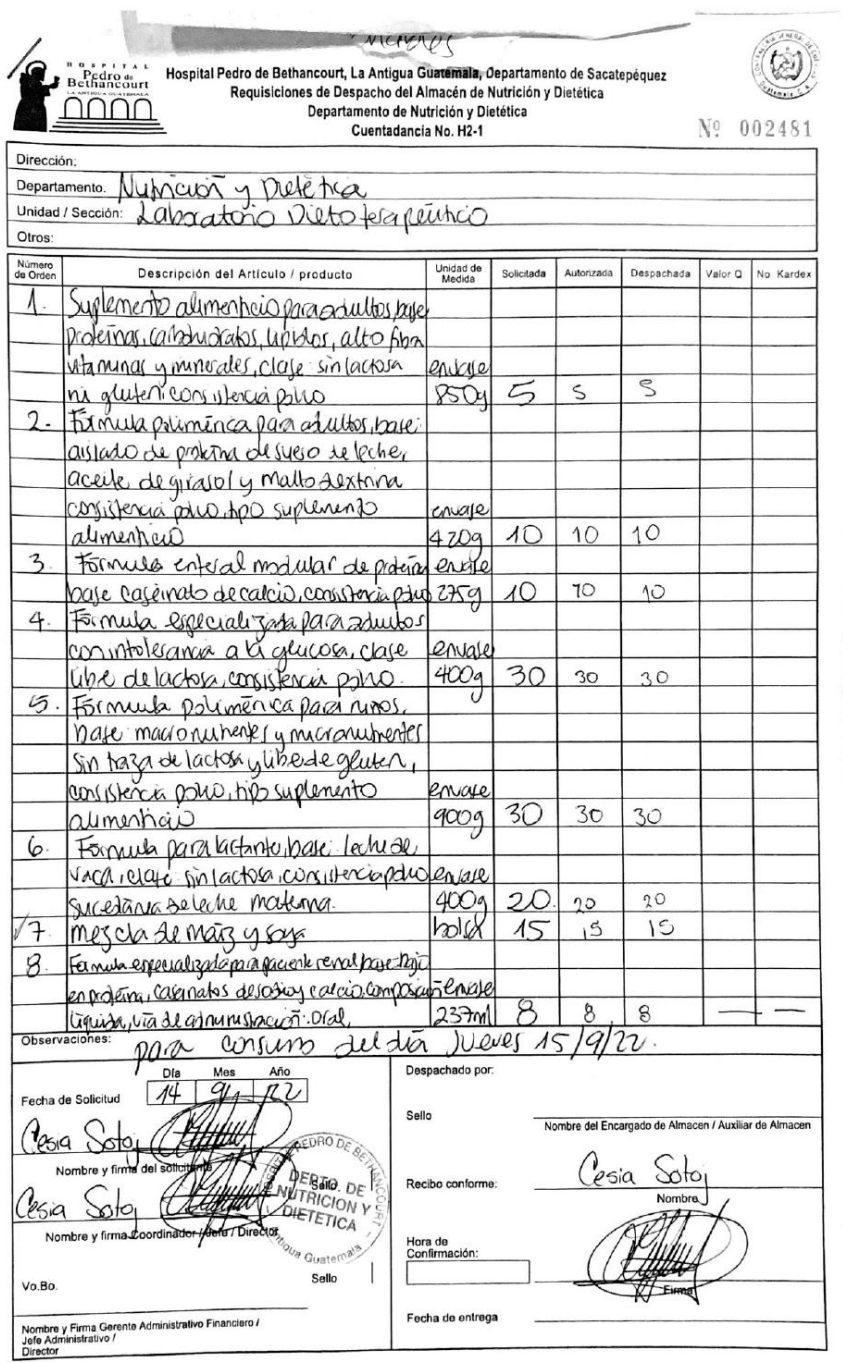 HOSPITAL
Pedro de
Bethancourt
LA ANTIGUA GUATEMALA
Hospital Pedro de Bethancourt, La Antigua Guatemala, Departamento de Sacatepéquez
Requisiciones de Despacho del Almacén de Nutrición y Dietética
Departamento de Nutrición y Dietética
Cuentadancia No. H2-1
Nº 002481
Dirección:
Departamento. Nutrición y Dietética
Unidad / Sección: Laboratorio Dietoterapéutico
Otros:
Número de Orden Descripción del Artículo / producto Unidad de Medida Solicitada Autorizada Despachada Valor Q No Kardex
1. Suplemento alimenticio para adultos, base
proteínas, carbohidratos, lípidos, alto fibra
vitaminas y minerales, clase sin lactosa envase
ni gluten: consistencia polvo 850g 5 5 5
2. Fórmula polimérica para adultos, base:
aislado de proteína de suero de leche,
aceite de girasol y maltodextrina
consistencia polvo, tipo suplemento envase
alimenticio 420g 10 10 10
3. Fórmula enteral modular de proteína envase
base caseinato de calcio, consistencia polvo 275g 10 10 10
4. Fórmula especializada para adultos
con intolerancia a la glucosa, clase envase
libre de lactosa, consistencia polvo. 400g 30 30 30
5. Fórmula polimérica para niños,
base macronutrientes y micronutrientes
sin traza de lactosa y libre de gluten,
consistencia polvo, tipo suplemento envase
alimenticio 900g 30 30 30
6. Fórmula para lactante, base: leche de
vaca, clase sin lactosa, consistencia polvo envase
sucedánea de leche materna. 400g 20. 20 20
√7. mezcla de maíz y soya bolsa 15 15 15
8. Fórmula especializada para paciente renal base: bajo
en proteína, caseinatos de sodio y calcio, composición envase
líquida, vía de administración: oral, 237ml 8 8 8 — —
Observaciones: para consumo del día Jueves 15/9/22.
Día Mes Año
Fecha de Solicitud 14 9 22
Cesia Sotoj
Nombre y firma del solicitante
Cesia Sotoj
Nombre y firma Coordinador / Jefe / Director
Sello.
HOSPITAL PEDRO DE BETHANCOURT
DEPTO. DE
NUTRICION Y
DIETETICA
Antigua Guatemala
Sello
Vo.Bo.
Nombre y Firma Gerente Administrativo Financiero /
Jefe Administrativo /
Director
Despachado por:
Sello
Nombre del Encargado de Almacen / Auxiliar de Almacen
Recibo conforme: Cesia Sotoj
Nombre
Hora de
Confirmación:
Firma
Fecha de entrega